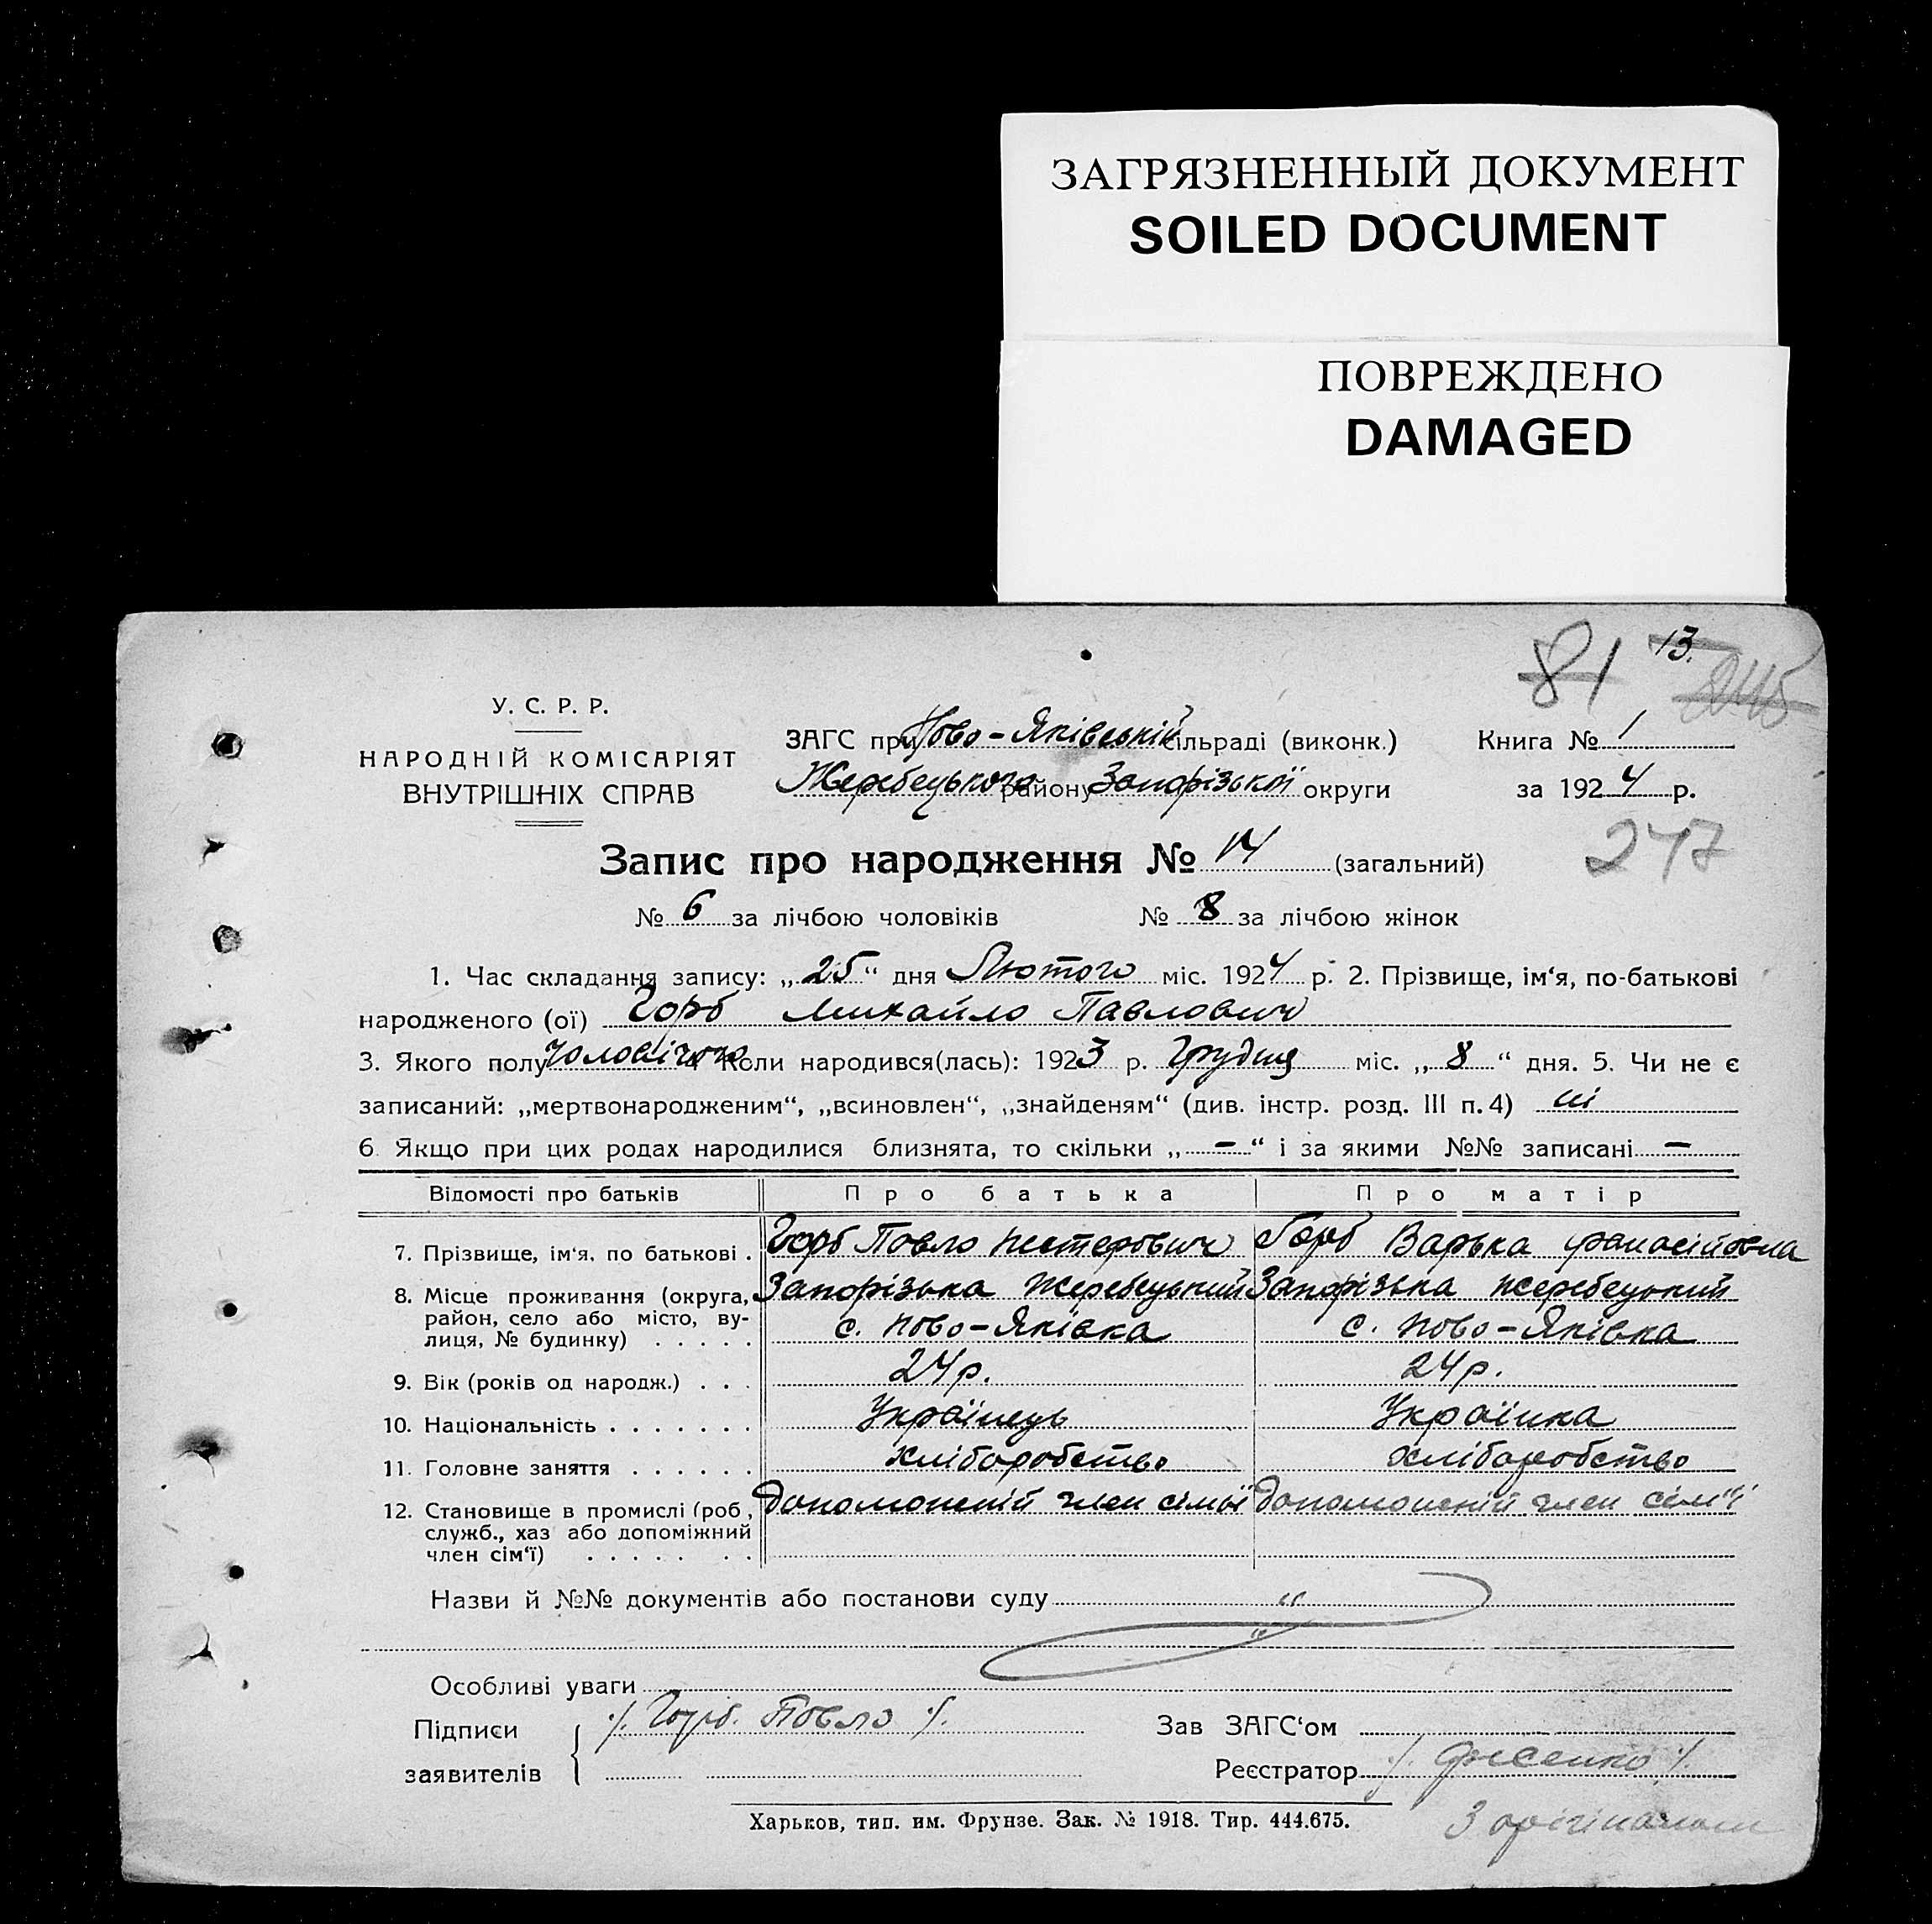 ЗАГРЯЗНЕННЫЙ ДОКУМЕНТ
SOILED DOCUMENT
ПОВРЕЖДЕНО
DAMAGED
81 13.
У. С. Р. Р.
НАРОДНІЙ КОМІСАРІЯТ
ВНУТРІШНІХ СПРАВ
ЗАГС при Ново-Яківській сільраді (виконк.) Книга № 1
Жеребецького району Запорізької округи за 1924 р.
247
Запис про народження № 14 (загальний)
№ 6 за лічбою чоловіків № 8 за лічбою жінок
1. Час складання запису: „25“ дня Лютого міс. 1924 р. 2. Прізвище, ім‘я, по-батькові
народженого (ої) Горб Михайло Павлович
3. Якого полу чоловічого 4. Коли народився(лась): 1923 р. Грудня міс. „8“ дня. 5. Чи не є
записаний: „мертвонародженим“, „всиновлен“, „знайденям“ (див. інстр. розд. III п. 4) ні
6. Якщо при цих родах народилися близнята, то скільки „—“ і за якими №№ записані —
Відомості про батьків Про батька Про матір
7. Прізвище, ім‘я, по батькові . Горб Павло Нестерович Горб Варька Панасійовна
8. Місце проживання (округа, Запорізька Жеребецький Запорізька Жеребецький
район, село або місто, ву- с. Ново-Яківка с. Ново-Яківка
лиця, № будинку) . . . . .
9. Вік (років од народж.) . . . 24 р. 24 р.
10. Національність . . . . . . . Українець Українка
11. Головне заняття . . . . . . хліборобство хліборобство
12. Становище в промислі (роб, допоможній член сімьї допоможній член сім'ї
служб., хаз або допоміжний
член сім‘ї) . . . . . . .
Назви й №№ документів або постанови суду
Особливі уваги
Підписи /. Горб. Павло /. Зав ЗАГС‘ом
заявителів Реєстратор
Харьков, тип. им. Фрунзе. Зак. № 1918. Тир. 444.675.
З орігіналом